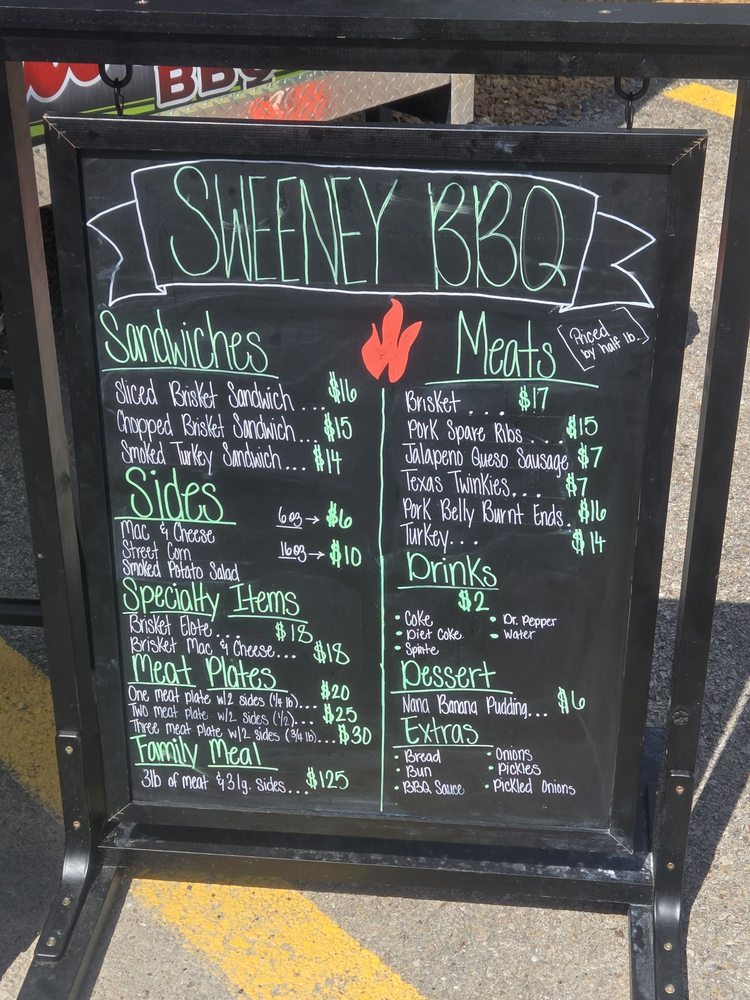 BBQ
SWEENEY BBQ
Sandwiches
Sliced Brisket Sandwich ... $16
Chopped Brisket Sandwich... $15
Smoked Turkey Sandwich... $14
Sides
6oz → $6
Mac & Cheese
Street Corn
16oz → $10
Smoked Potato Salad
Specialty Items
Brisket Elote ... $18
Brisket Mac & Cheese... $18
Meat Plates
One meat plate w/2 sides (1/4 lb)... $20
Two meat plate w/2 sides (1/2)... $25
Three meat plate w/2 sides (3/4 lb)... $30
Family Meal
3lb of meat & 3 lg. sides... $125
Meats
[Priced by half lb.]
Brisket .... $17
Pork Spare Ribs ... $15
Jalapeno Queso Sausage $7
Texas Twinkies... $7
Pork Belly Burnt Ends. $16
Turkey... $14
Drinks
$2
• Coke • Dr. Pepper
• Diet Coke • Water
• Sprite
Dessert
Nana Banana Pudding... $6
Extras
• Bread • Onions
• Bun • Pickles
• BBQ Sauce • Pickled Onions